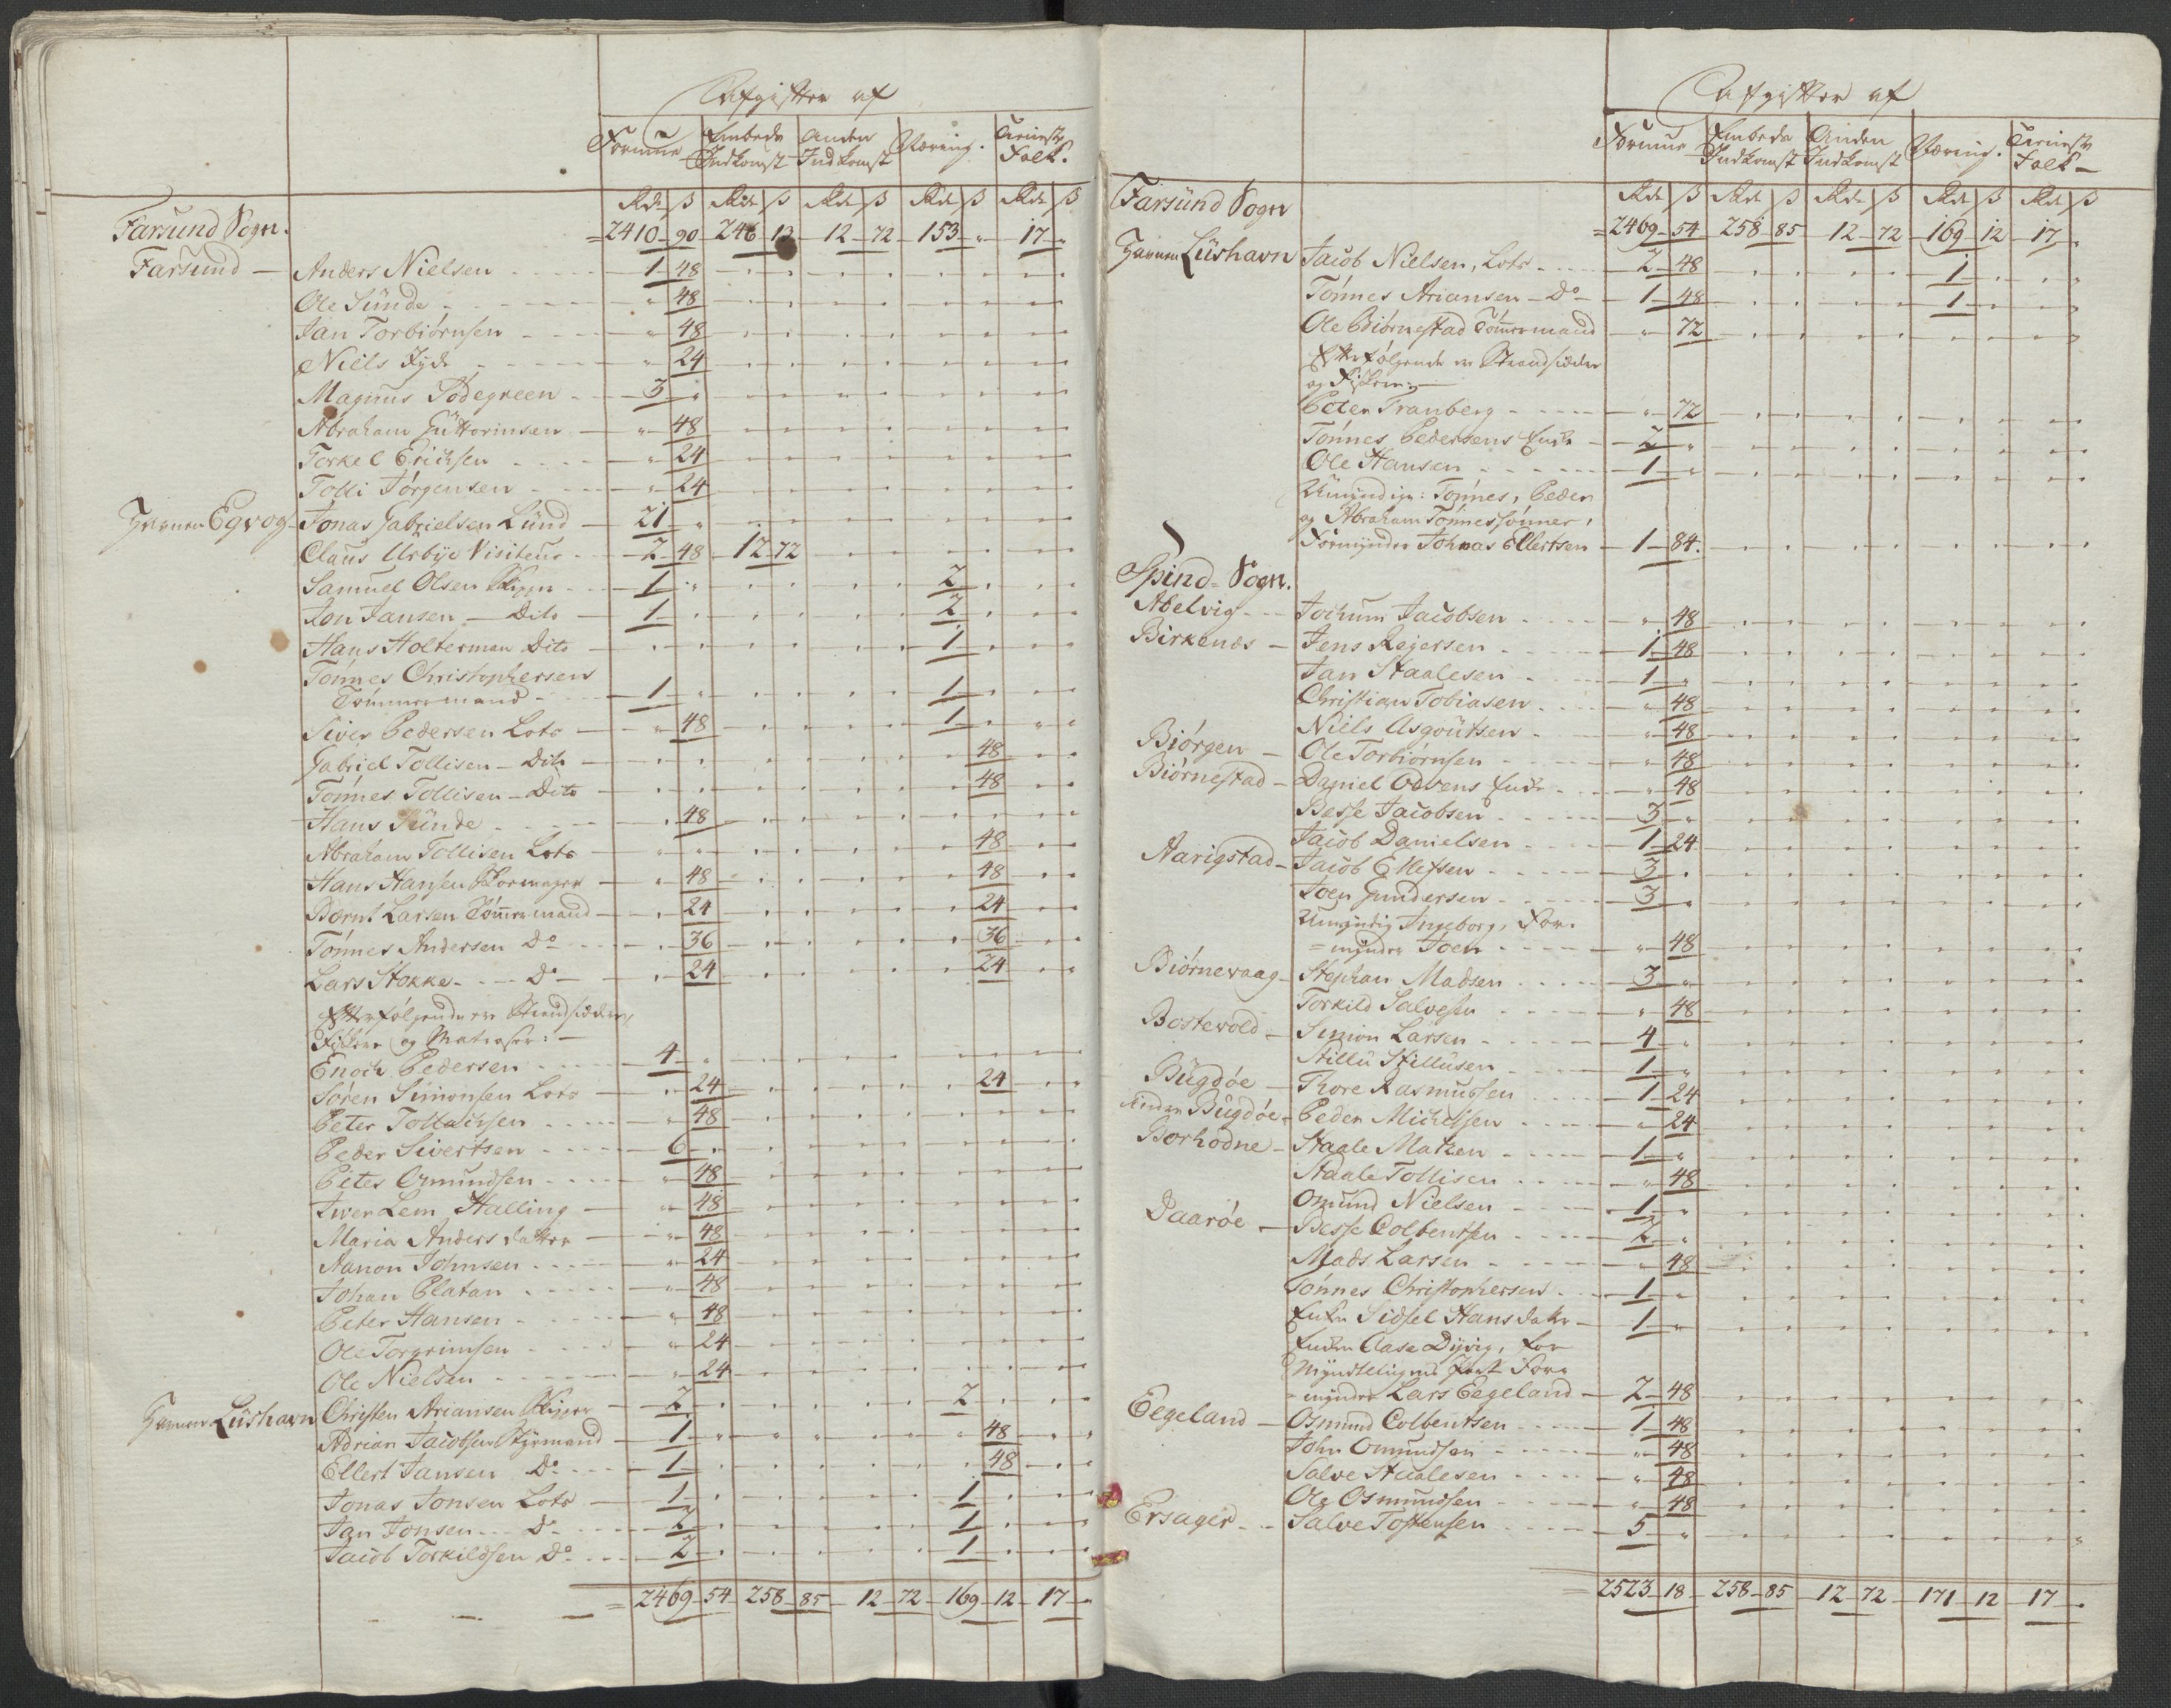 Afgifter af
Formue Embeds Indkomst Anden Indkomst Næring. Tieniste Folk.
Rdr ß Rdr ß Rdr ß Rdr ß Rdr ß
Farsund Sogn. = 2410 - 90 - 246 13 - 12 - 72 - 153 - " - 17 - "
Farsund - Anders Nielsen - 1 - 48
Ole Sünde - " 48
Jan Torbiørnsen - " 48
Niels Jyde - " 24
Magnus Södegreen - 3 - "
Abraham Guttormsen - " - 48
Torkel Erichsen - " 24
Tolli Jørgensen - " 24
Havnen Egvog - Jonas Gabrielsen Lünd - 21 - "
Claus Urbye Visiteur - 2 - 48 - 12 - 72
Samuel Olsen Skipper - 1 - " 2
Jon Jansen - Dito - 1 - 2
Hans Holterman Dito - 1
Tönnes Christophersen
Tömmermand - 1 - " 1
Siver Pedersen Lots - " 48 1
Gabriel Tollisen - Dito - 48
Tönnes Tollisen - Dito - 48
Hans Sünde - " 48
Abraham Tollisen Lots - 48
Hans Hansen Skomager - " 48 48
Børnt Larsen Tömmermand - " 24 24
Tönnes Andersen Do - " 36 36
Lars Stokke - Do - " 24 24
Efterfølgende er Strandsiddere,
Fiskere og Matroser: -
Enoch Pedersen - 4 - "
Søren Simonsen Lots - " 24 24
Peter Tollachsen - " 48
Peder Sivertsen - 6 - "
Peter Omundsen - " 48
Iver Lem Halling - " 48
Maria Anders datter - " 48
Aanon Johnsen - " 24
Johan Platan - " 48
Peter Hansen - " 48
Ole Torgrimsen - " 24
Ole Nielsen - " 24
Havnen Lüshavn Christen Ariansen Skipper - 2 - 2
Adrian Jacobsen Styrmand - 1 - " 48
Ellert Jansen Do - 1 - 48
Jonas Jonsen Lots - 1 - 1
Jan Jonsen - Do - 2 - 1
Jacob Torkildsen Do - 2 - 1
= 2469 - 54 258 - 85 - 12 - 72 - 169 - 12 - 17 - "
Afgifter af
Formue Embeds Indkomst Anden Indkomst Næring. Tieniste Folk -
Rdr ß Rdr ß Rdr ß Rdr ß Rdr ß
Farsünd Sogn
= 2469 - 54 258 - 85 - 12 - 72 - 169 - 12 - 17 - "
Havnen Lüshavn Jacob Nielsen, Lots - 2 - 48 1
Tönnes Ariansen - Do - 1 - 48 1
Ole Biörnestad Tömmermand - " 72
Efterfølgende er Strandsiddere
og Fiskere: -
Peter Tranberg - " 72
Tönnes Pedersens Enke - 2 - "
Ole Hansen - 1 - "
Umyndige: Tönnes, Peder
og Abraham Tönnessønner,
Formynder Johnas Ellertsen - 1 - 84.
Spind - Sogn.
Abelvig - Jochum Jacobsen - " 48
Birkenæs - Jens Rejersen - 1 - 48
Jan Staalesen - 1 - "
Christian Tobiasen - " 48
Niels Asgoütsen - " 48
Biörgen - Ole Torbiørnsen - " 48
Biörnestad - Daniel Odvens Enke - " 48
Besse Jacobsen - 3 - "
Jacob Danielsen - 1 - 24
Aarigstad - Jacob Ellefsen - 3 - "
Joen Gundersen - 3 - "
Umyndig Ingeborg, For-
= mynder Joen - " 48
Biörnevaag - Stephan Madsen - 3 - "
Torkild Salvesen - " 48
Bostevold - Simon Larsen - 4 - "
Stillü Stillüsen - 1 - "
Bügdöe - Thore Rasmussen - 1 - 24
Bügdöe - Peder Michelsen - " 24
Borhodne - Staale Matzen - 1 - "
Staale Tollisen - " 48
Omund Nielsen - 1 - "
Daaröe - Besse Colbentsen - 2 - "
Mads Larsen - " 48
Tönnes Christophersen - 1 - "
Enken Sidsel Hansdatter - 1 - "
Enken Aase Dyvig, for
Myndtlingens Part For-
= mynder Lars Eegeland - 2 - 48
Eegeland - Osmund Colbentsen - 1 - 48
John Omundsen - " 48
Salve Staalesen - " 48
Ole Osmundsen - " 48
Ersager - Salve Tostensen - 5 - "
2523 - 18 - 258 - 85 - 12 - 72 - 171 - 12 - 17 - "